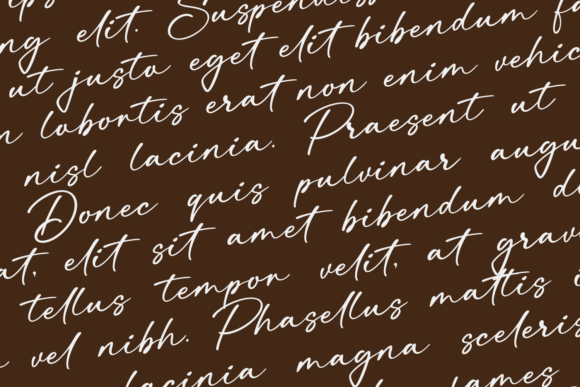 ng elit. Suspendiss
ut justo eget elit bibendum fa
n lobortis erat non enim vehic
nisl lacinia. Praesent ut
Donec quis pulvinar augu
at, elit sit amet bibendum d
tellus tempor velit, at grav
vel nibh. Phasellus mattis
lacinia magna sceleris